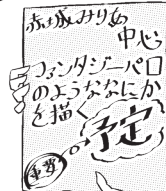 赤城みりあ
中心
ファンタジーパロ
のようななにか
を描く
予定
重要